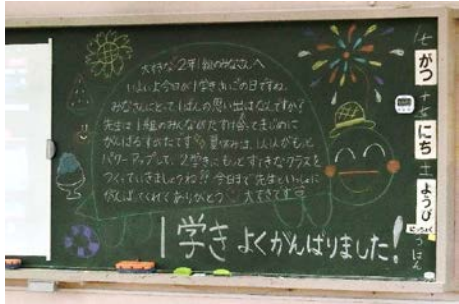 大すきな2年1組のみなさんへ
いよいよ今日が1学きさいごの日ですね。
みなさんにとって1ばんの思い出はなんですか?
先生は1組のみんながたすけ合ってまじめに
がんばるすがたです 夏休みは、1人1人がもっと
パワーアップして、2学きにもっとすてきなクラスを
つくっていきましょうね!! 今日まで先生といっしょに
がんばってくれてありがとう 大すきです
1学きよくがんばりました!
七
がつ
十
にち
土
ようび
にっちょく